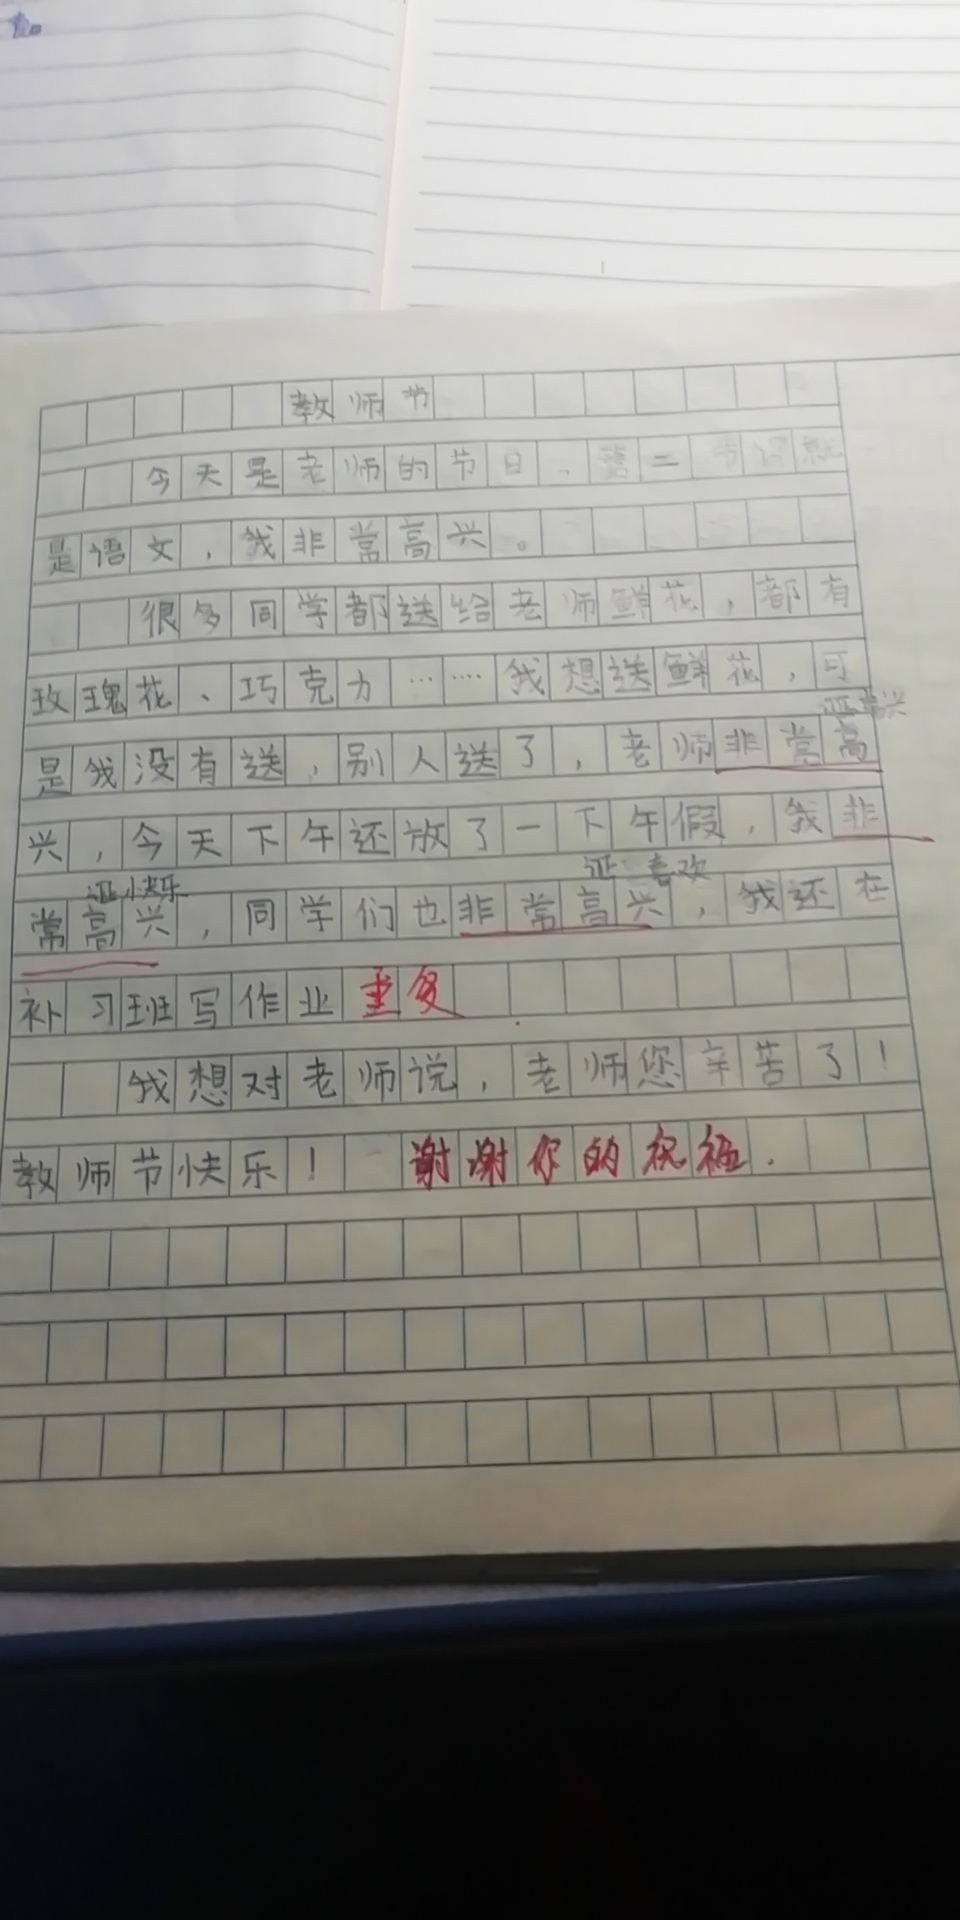 教师节
今天是老师的节日、第二节课就
是语文，我非常高兴。
很多同学都送给老师鲜花，都有
玫瑰花、巧克力……我想送鲜花，可
是我没有送，别人送了，老师非常高
兴，今天下午还放了一下午假，我非
快乐
喜欢
常高兴，同学们也非常高兴，我还在
补习班写作业 重复
我想对老师说，老师您辛苦了！
教师节快乐！ 谢谢你的祝福.